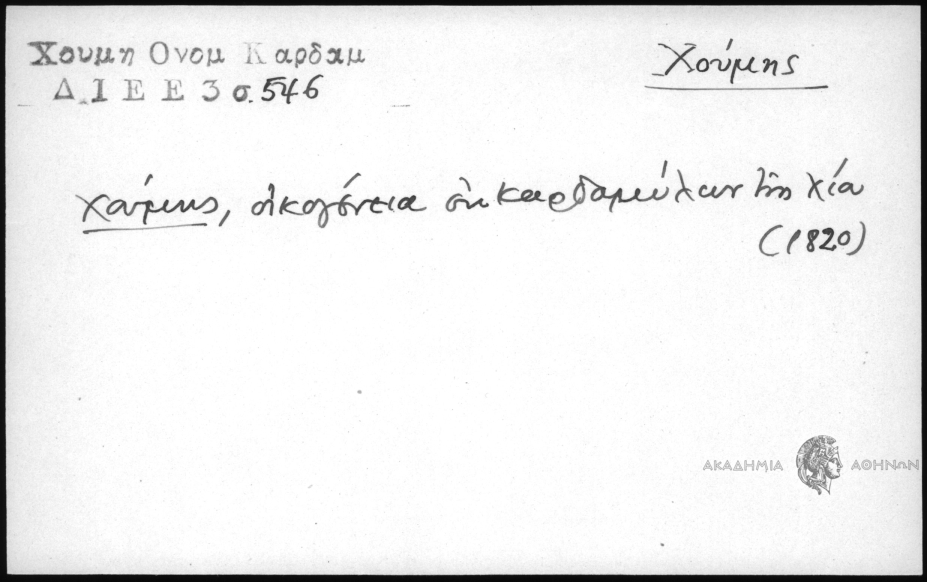 Χουμη Ονομ Καρδαμ
Δ Ι Ε Ε 3 σ. 546
Χούμης
Χούμης, οικογένεια Καρδαμύλων της Χίου
(1820)
ΑΚΑΔΗΜΙΑ ΑΘΗΝΩΝ